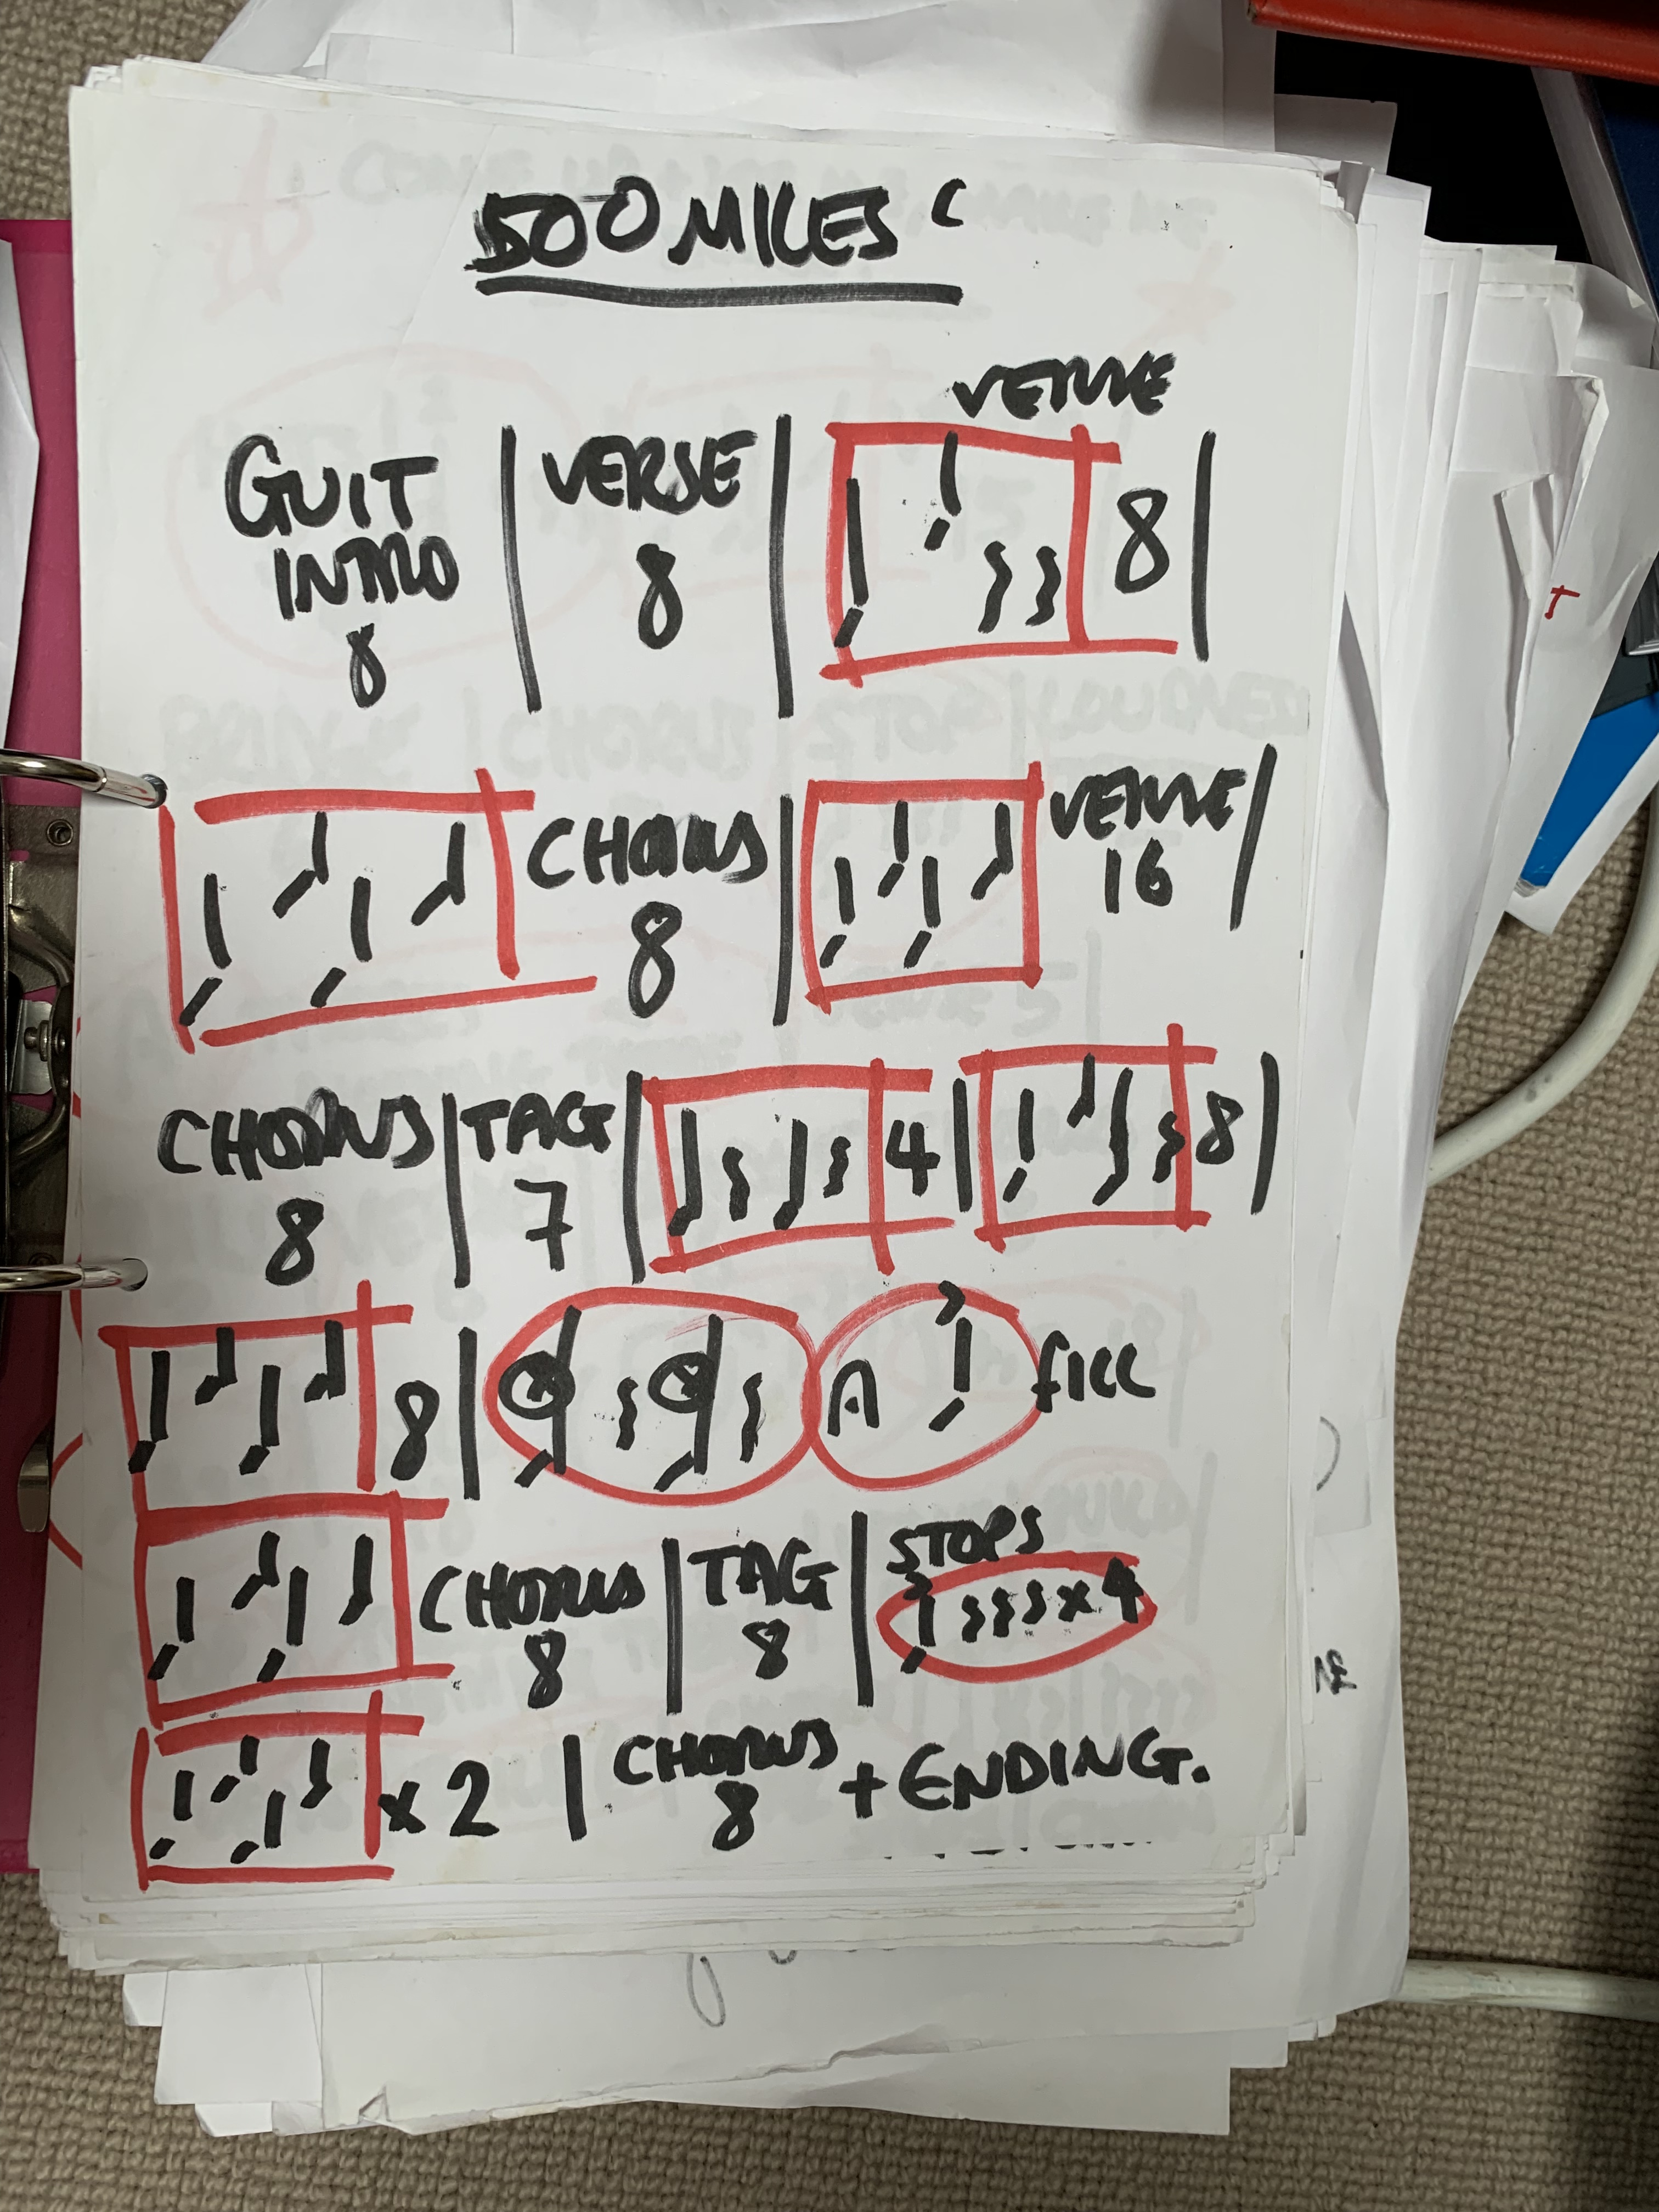 500 MILES C
VERSE
GUIT | VERSE | 8 |
INTRO 8
8
CHORUS | VERSE |
8 16
CHORUS | TAG | 4 | 8 |
8 7
8 | fill
CHORUS | TAG | STOPS
8 8 x 4
x 2 | CHORUS + ENDING.
8